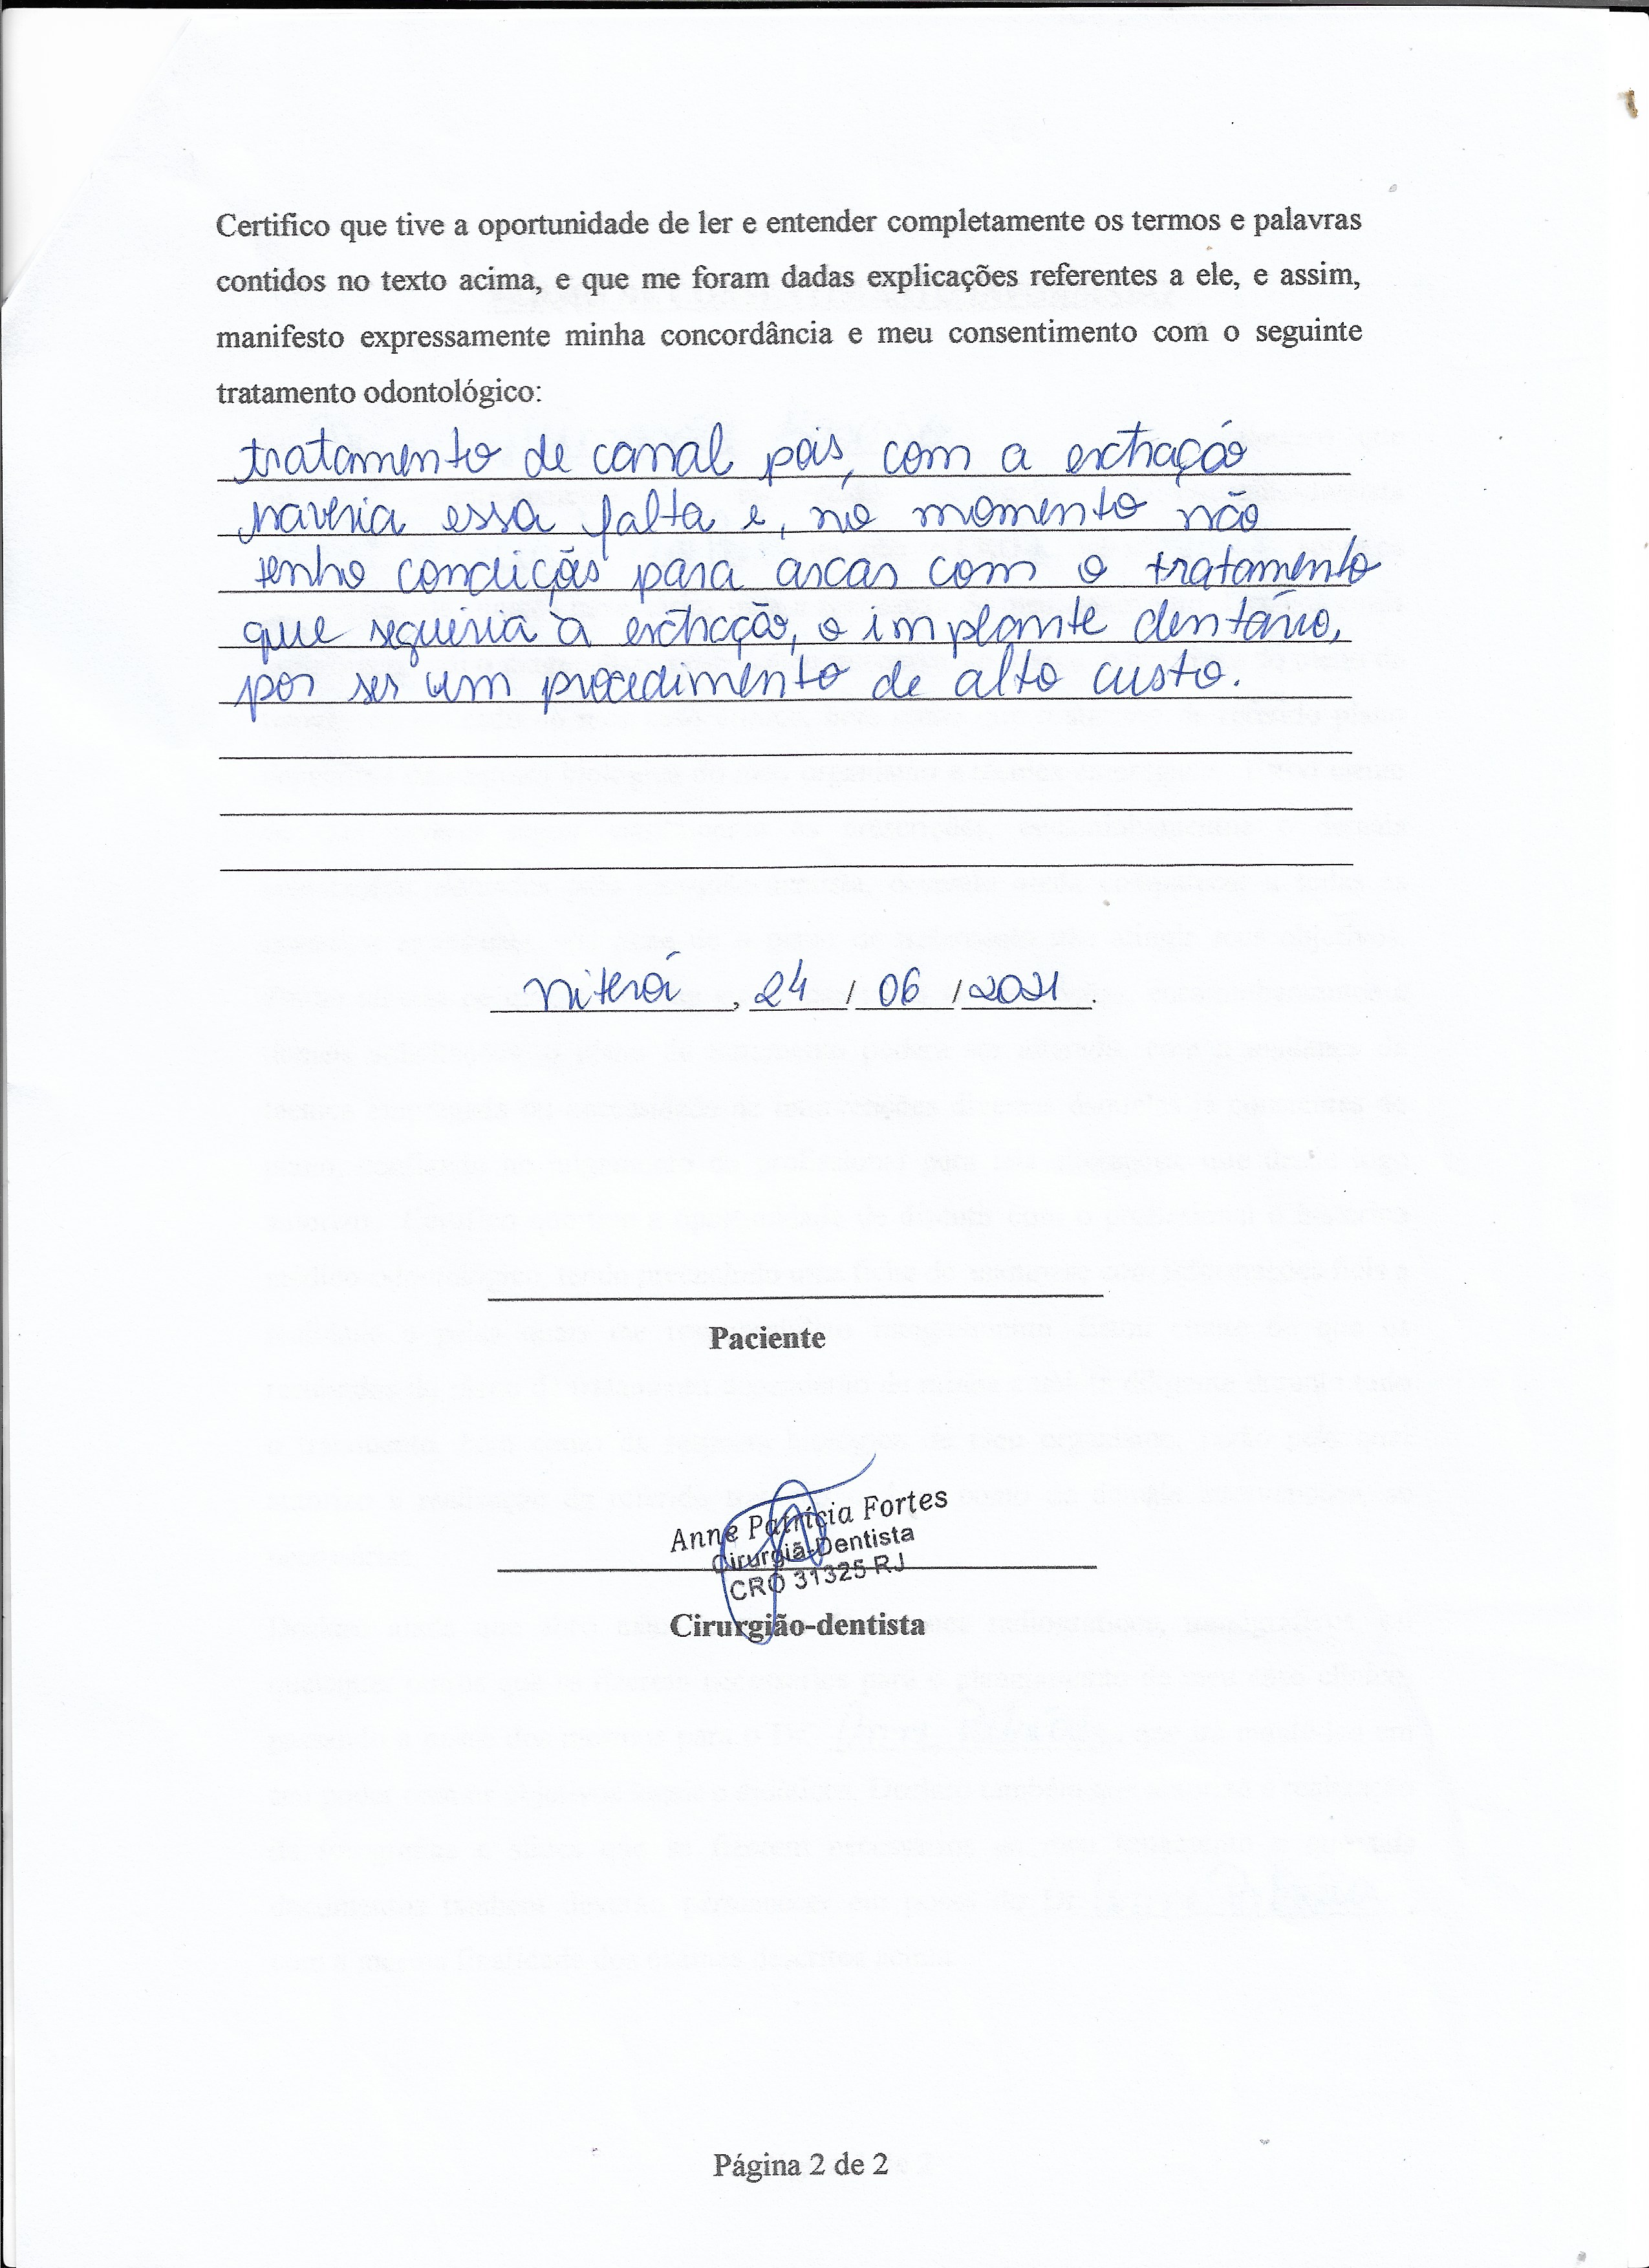 Certifico que tive a oportunidade de ler e entender completamente os termos e palavras
contidos no texto acima, e que me foram dadas explicações referentes a ele, e assim,
manifesto expressamente minha concordância e meu consentimento com o seguinte
tratamento odontológico:
tratamento de canal pois, com a extração
haveria essa falta e, no momento não
tenho condições para arcar com o tratamento
que seguiria à extração, o implante dentário,
por ser um procedimento de alto custo.
Niterói, 24 / 06 / 2021.
Paciente
Anne Patrícia Fortes
Cirurgiã-Dentista
CRO 31325 RJ
Cirurgião-dentista
Página 2 de 2